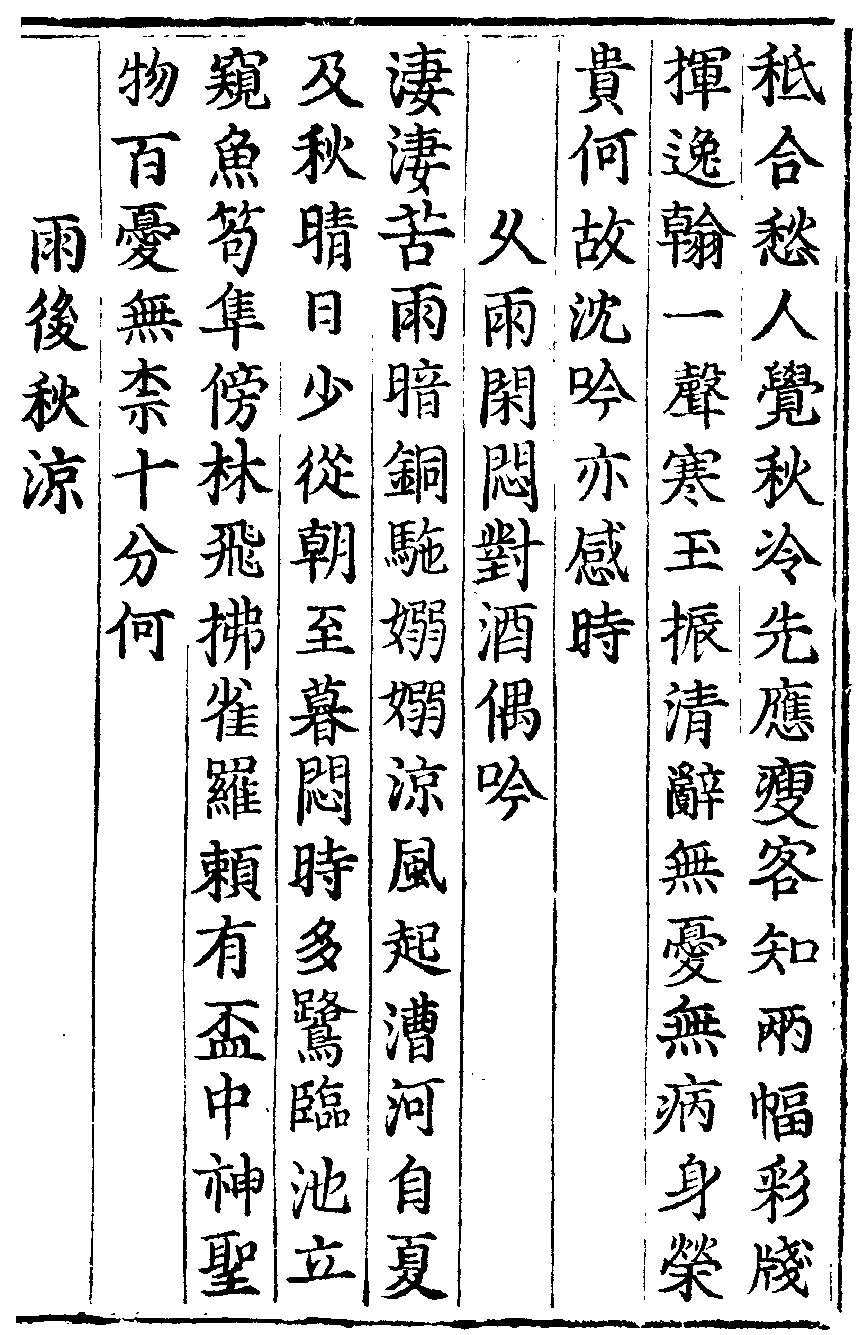 秪合愁人覺秋冷先應瘦客知兩幅彩牋
揮逸翰一聲寒玉振清辭無憂無病身榮
貴何故沈吟亦感時
乆雨閑悶對酒偶吟
淒淒苦雨暗銅駞嫋嫋涼風起漕河自夏
及秋晴日少從朝至暮悶時多鷺臨池立
窺魚笱隼傍林飛拂雀羅賴有盃中神聖
物百憂無柰十分何
雨後秋涼